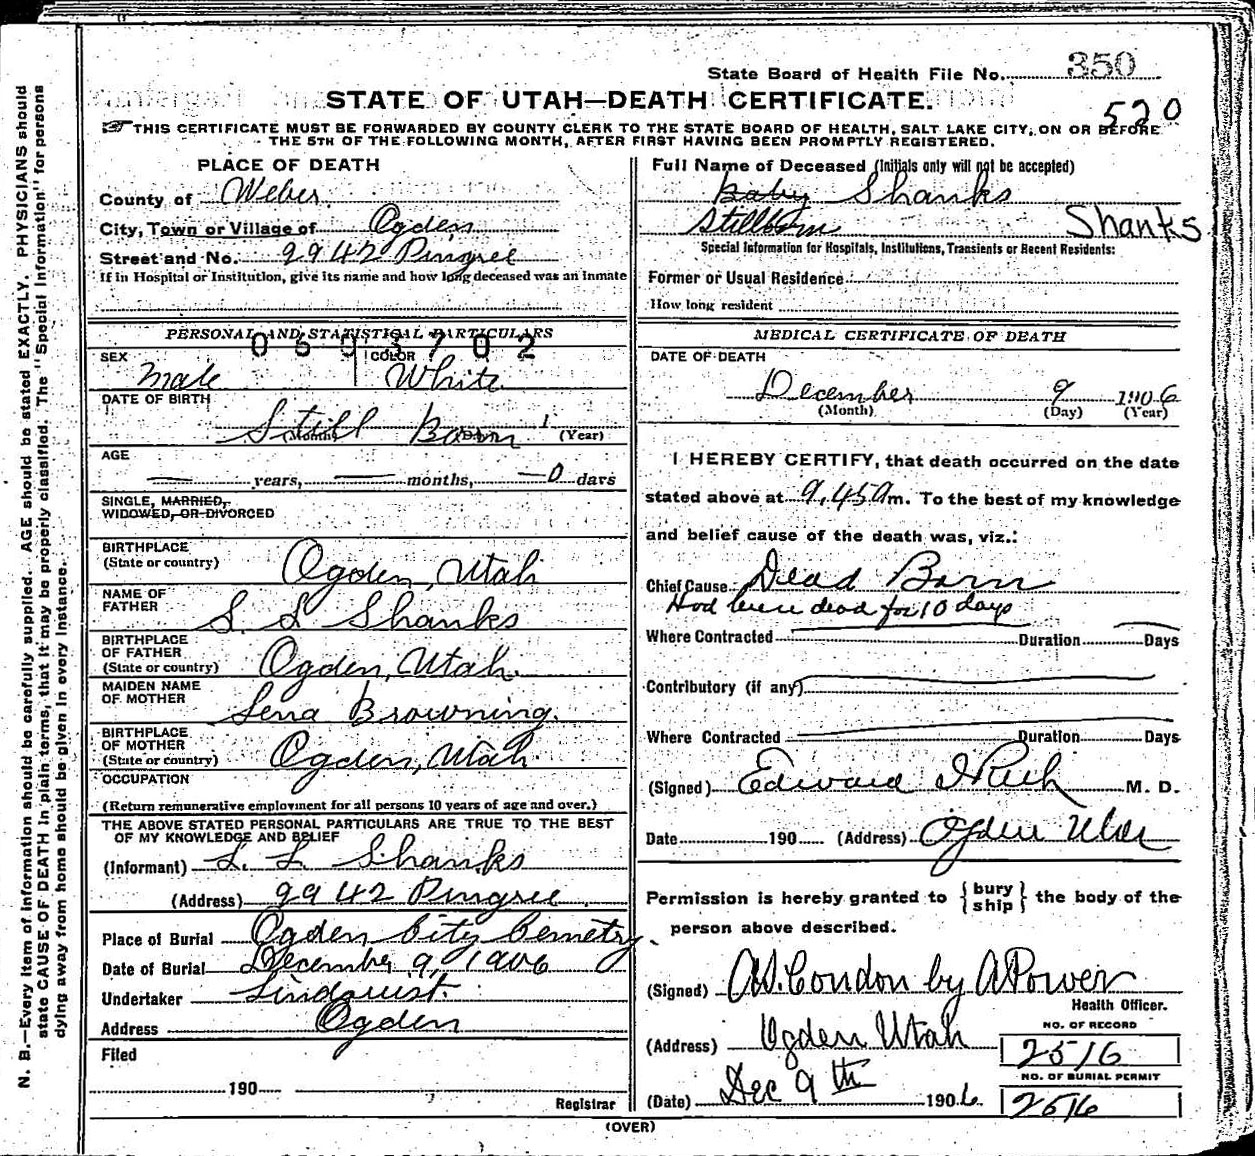 State Board of Health File No. 350
STATE OF UTAH—DEATH CERTIFICATE.
520
THIS CERTIFICATE MUST BE FORWARDED BY COUNTY CLERK TO THE STATE BOARD OF HEALTH, SALT LAKE CITY, ON OR BEFORE
THE 5TH OF THE FOLLOWING MONTH, AFTER FIRST HAVING BEEN PROMPTLY REGISTERED.
PLACE OF DEATH
County of Weber
City, Town or Village of Ogden
Street and No. 2942 Pingree
If in Hospital or Institution, give its name and how long deceased was an inmate
PERSONAL AND STATISTICAL PARTICULARS
0603702
SEX
Male
COLOR
White
DATE OF BIRTH
Still Born 1
(Month) (Day) (Year)
AGE
— years, — months, —0 days
SINGLE, MARRIED,
WIDOWED, OR DIVORCED
BIRTHPLACE
(State or country) Ogden, Utah
NAME OF
FATHER S. L Shanks
BIRTHPLACE
OF FATHER
(State or country) Ogden, Utah.
MAIDEN NAME
OF MOTHER Lena Browning.
BIRTHPLACE
OF MOTHER
(State or country) Ogden, Utah.
OCCUPATION
(Return remunerative employment for all persons 10 years of age and over.)
THE ABOVE STATED PERSONAL PARTICULARS ARE TRUE TO THE BEST
OF MY KNOWLEDGE AND BELIEF
(Informant) L. Shanks
(Address) 2942 Pingree
Place of Burial Ogden City Cemetry.
Date of Burial December 9, 1906
Undertaker Lindquist.
Address Ogden
Filed
190
Registrar
Full Name of Deceased (Initials only will not be accepted)
Baby Shanks
Stillborn Shanks
Special Information for Hospitals, Institutions, Transients or Recent Residents:
Former or Usual Residence
How long resident
MEDICAL CERTIFICATE OF DEATH
DATE OF DEATH
December 9 1906
(Month) (Day) (Year)
I HEREBY CERTIFY, that death occurred on the date
stated above at 9,45 a m. To the best of my knowledge
and belief cause of the death was, viz.:
Chief Cause Dead Born
Had been dead for 10 days
Where Contracted Duration Days
Contributory (if any)
Where Contracted Duration Days
(Signed) Edward I Rich M. D.
Date 190 (Address) Ogden Utah
Permission is hereby granted to { bury ship } the body of the
person above described.
(Signed) Condon by A Power
Health Officer.
(Address) Ogden Utah
(Date) Dec 9th 1906.
NO. OF RECORD
2516
NO. OF BURIAL PERMIT
2516
(OVER)
N. B.—Every item of information should be carefully supplied. AGE should be stated EXACTLY. PHYSICIANS should
state CAUSE OF DEATH in plain terms, that it may be properly classified. The "Special Information" for persons
dying away from home should be given in every instance.